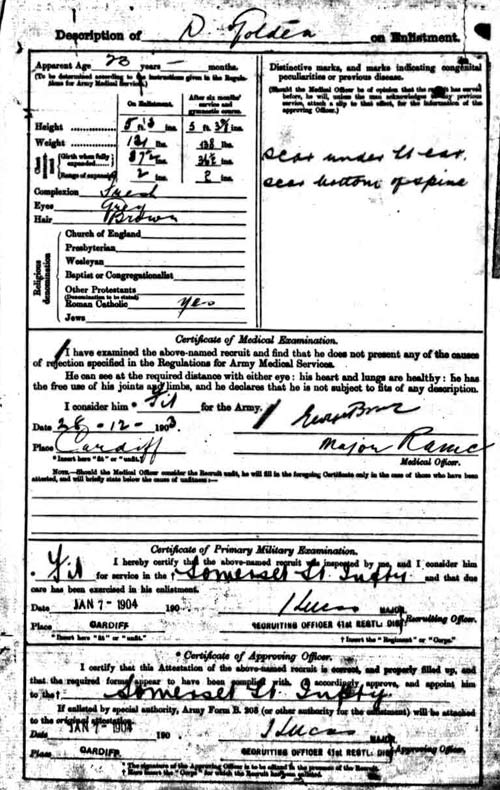 Description of D. Golden on Enlistment.
Apparent Age 23 years — months.
(To be determined according to the instructions given in the Regulations for Army Medical Services.)
On Enlistment.
After six months' service and gymnastic course.
Height 5 ft. 3 ins. 5 ft. 3½ ins.
Weight 121 lbs. 128 lbs.
Chest Girth when fully expanded 37½ ins. 36½ ins.
Range of expansion 2 ins. 2 ins.
Complexion Fresh
Eyes Grey
Hair Brown
Religious denomination
Church of England
Presbyterian
Wesleyan
Baptist or Congregationalist
Other Protestants
(Denomination to be stated)
Roman Catholic yes
Jews
Distinctive marks, and marks indicating congenital peculiarities or previous disease.
(Should the Medical Officer be of opinion that the recruit has served before, he will, unless the man acknowledges to any previous service, attach a slip to that effect, for the information of the approving Officer.)
scar under lt ear.
scar bottom of spine
Certificate of Medical Examination.
I have examined the above-named recruit and find that he does not present any of the causes
of rejection specified in the Regulations for Army Medical Services.
He can see at the required distance with either eye: his heart and lungs are healthy: he has
the free use of his joints and limbs, and he declares that he is not subject to fits of any description.
I consider him * Fit for the Army.
Date 28-12- 1903
Place Cardiff Major Ramc
* Insert here "fit" or "unfit." Medical Officer.
NOTE.—Should the Medical Officer consider the Recruit unfit, he will fill in the foregoing Certificate only in the case of those who have been
attested, and will briefly state below the cause of unfitness:—
Certificate of Primary Military Examination.
I hereby certify that the above-named recruit was inspected by me, and I consider him
* Fit for service in the † Somerset Lt Infty and that due
care has been exercised in his enlistment.
Date JAN 7 - 1904 190 J Lucas MAJOR,
Place CARDIFF RECRUITING OFFICER 41ST REGTL: DIST Recruiting Officer.
* Insert here "fit" or "unfit." † Insert the "Regiment" or "Corps."
* Certificate of Approving Officer.
I certify that this Attestation of the above-named recruit is correct, and properly filled up, and
that the required forms appear to have been complied with. I accordingly approve, and appoint him
to the † Somerset Lt. Infty
If enlisted by special authority, Army Form B. 203 (or other authority for the enlistment) will be attached
to the original attestation.
Date JAN 7 - 1904 190 J Lucas MAJOR,
Place CARDIFF. RECRUITING OFFICER 41ST REGTL: DIST Approving Officer.
* The signature of the Approving Officer is to be affixed in the presence of the Recruit.
† Here insert the "Corps" for which the Recruit has been enlisted.